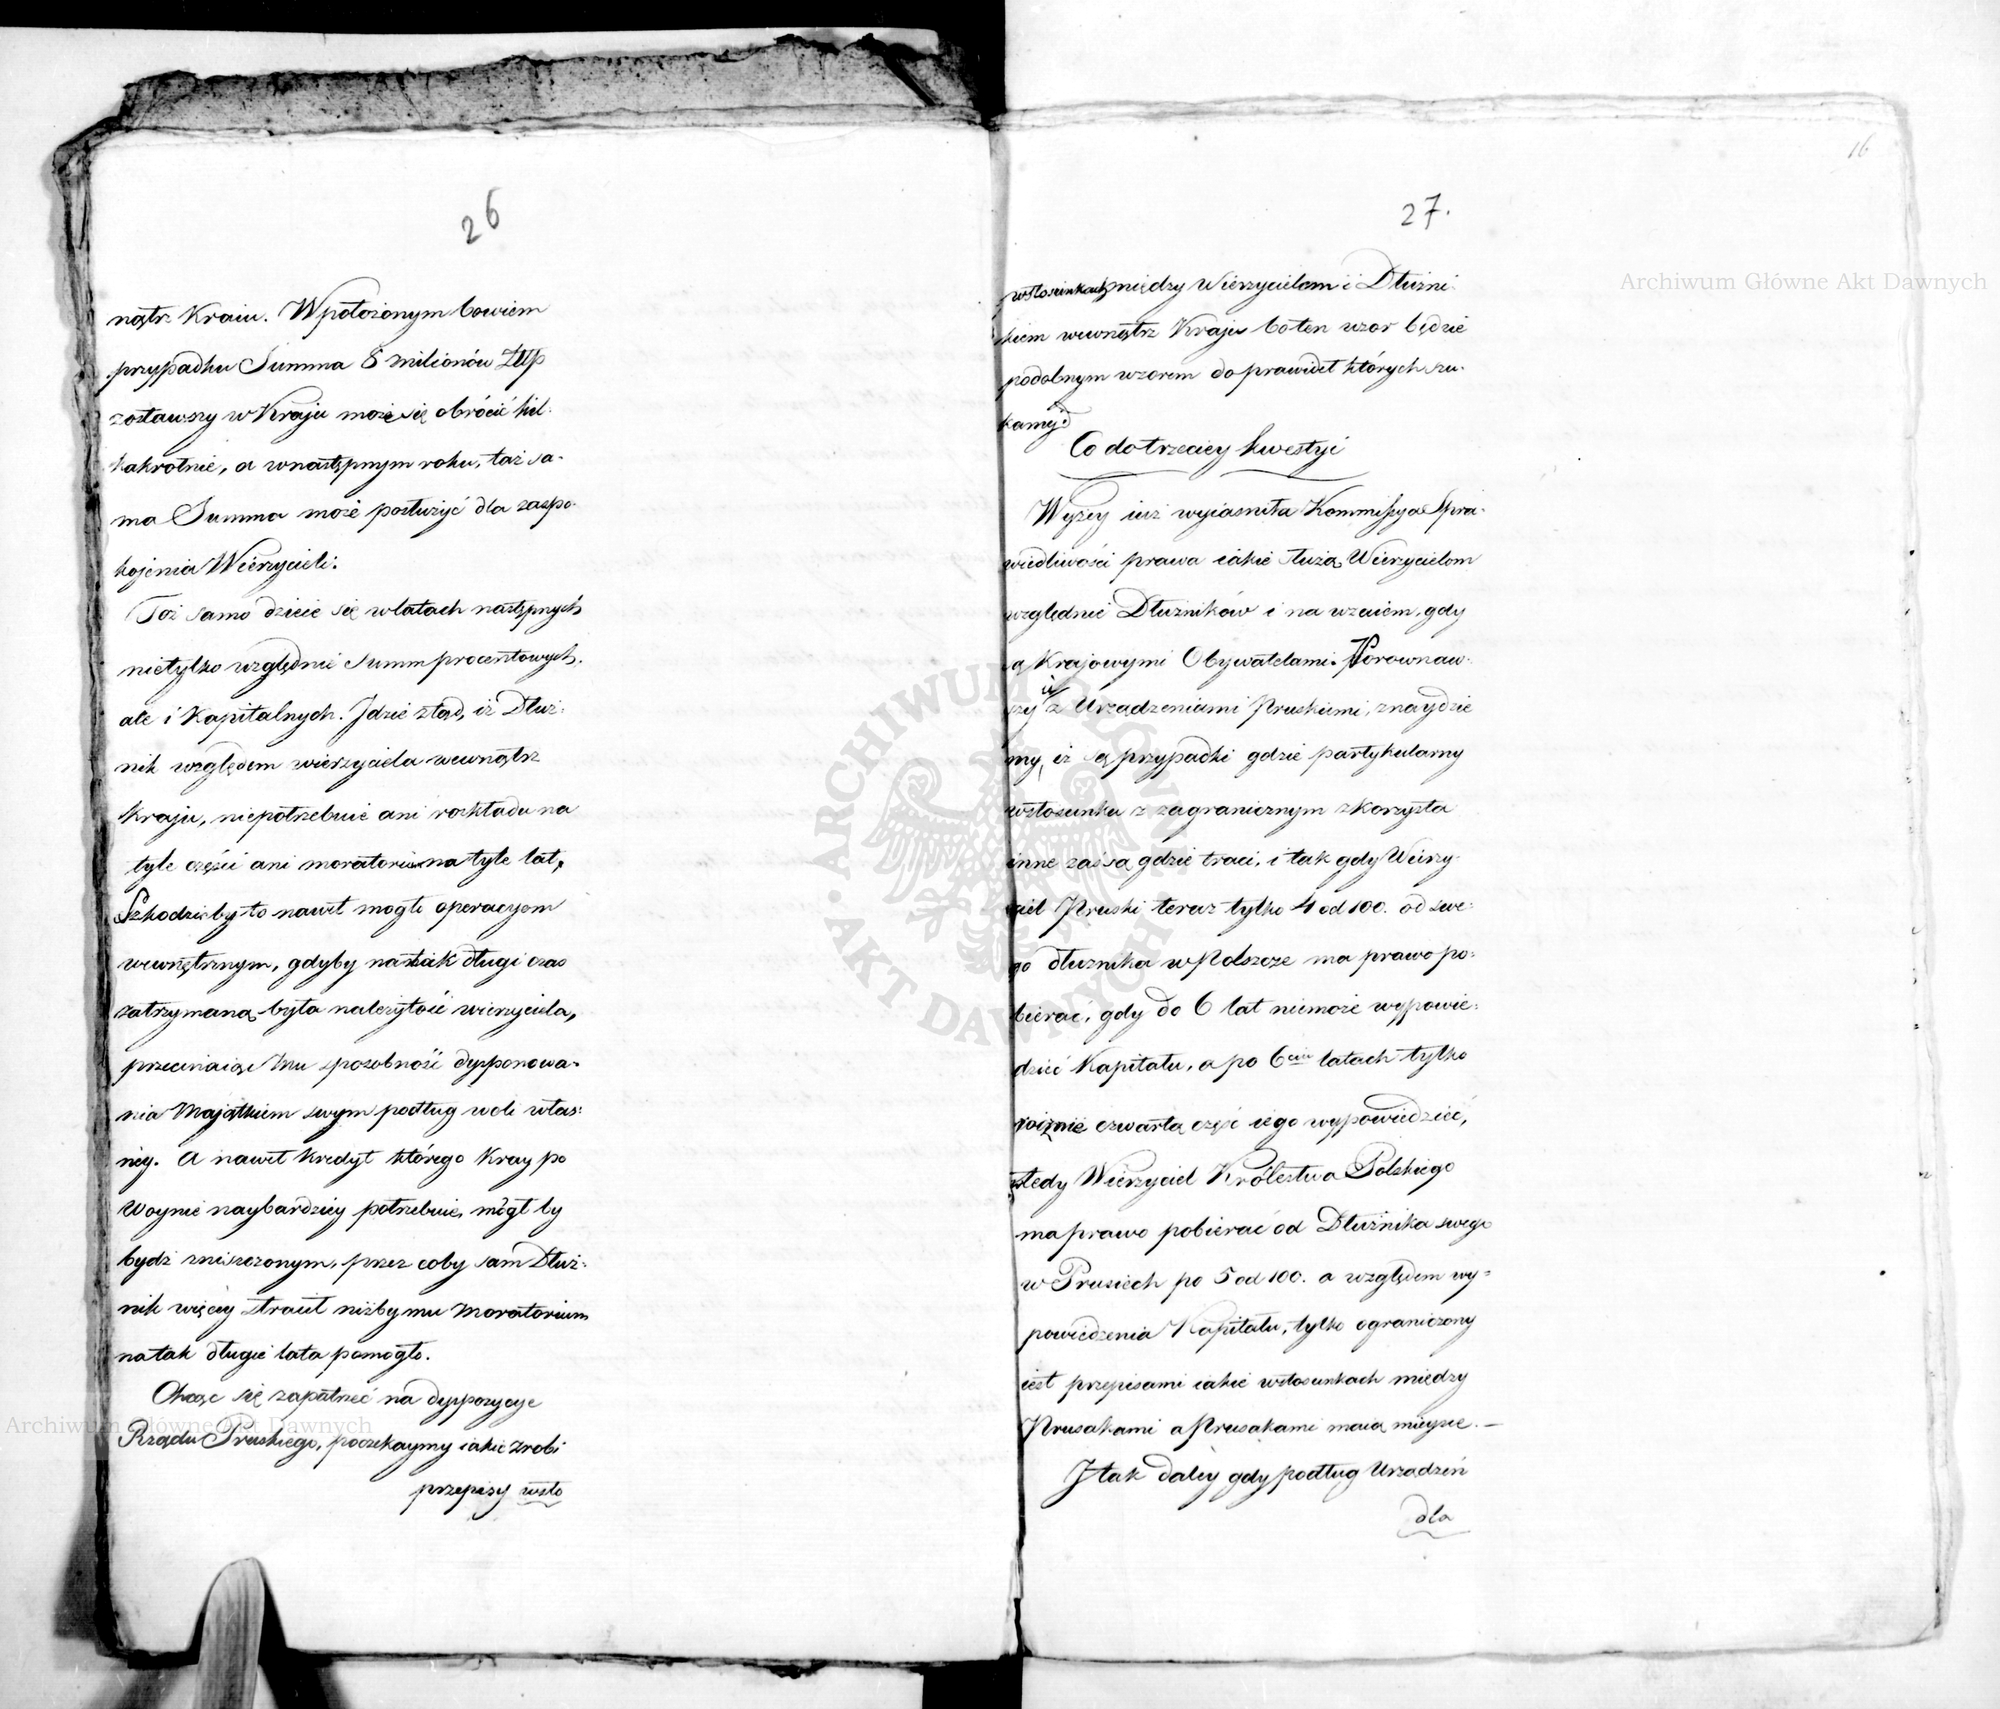 26
nątrz Kraiu. W położonym bowiem
przypadku Summa 8 milionów Złłp
zostawszy w Kraju może się obrócić kil-
kakrotnie, a w następnym roku, taż sa-
ma Summa może posłużyć dla zaspo-
kojenia Wierzycieli.
Toż samo dzieie się w latach następnych
nietylko względnie summ procentowych,
ale i Kapitalnych. Jdzie ztąd, iż Dłuż-
nik względem wierzyciela wewnątrz
kraju, niepotrzebuie ani rozkładu na
tyle części ani moratorium na tyle lat,
Szkodziłby to nawet mogło operacyom
wewnętrznym, gdyby na tak długi czas
zatrzymaną była należytość wierzyciela,
przecinaiąc Mu sposobność dysponowa-
nia Majątkiem swym podług woli włas-
néy. A nawet kredyt którego Kray po
Woynie naybardziéy potrzebuie, mógł by
bydź zniszczonym, przez coby sam Dłuż-
nik więcéy stracił niżby mu Moratorium
na tak długie lata pomogło.
Chcąc się zapatrzeć na dyspozycye
Rządu Pruskiego, poczekaymy iakie zrobi
przepisy w sto
16
27.
w stosunkach między Wierzycielem i Dłużni-
kiem wewnątrz Kraju bo ten wzor będzie
podobnym wzorem do prawideł których szu-
kamy.
Co do trzeciey kwestyi
Wyżey iuż wyiasniła Kommissya Spra-
wiedliwości prawa iakie służą Wierzycielom
względnie Dłużników i na wzaiem, gdy
są Krajowymi Obywatelami. Porownaw-
szy ie z Urządzeniami Pruskiemi, znaydzie
my, iż są przypadki gdzie partykularny
w stosunku z zagranicznym zkorzysta
inne zaś są gdzie traci, i tak gdy Wierzy-
ciel Pruski teraz tylko 4 od 100. od swe-
go dłużnika w Polszcze ma prawo po-
bierać, gdy do 6 lat niemoże wypowie-
dzieć Kapitału, a po 6ciu latach tylko
rocznie czwartą część iego wypowiedzieć,
wtedy Wierzyciel Królestwa Polskiego
ma prawo pobierać od Dłużnika swego
w Prusiech po 5 od 100. a względem wy-
powiedzenia Kapitału, tylko ograniczony
iest przepisami iakie w stosunkach między
Prusakami a Prusakami maią mieysce. —
J tak daléy gdy podług Urządzeń
dla
Archiwum Główne Akt Dawnych
Archiwum Główne Akt Dawnych
ARCHIWUM GŁÓWNE
AKT DAWNYCH